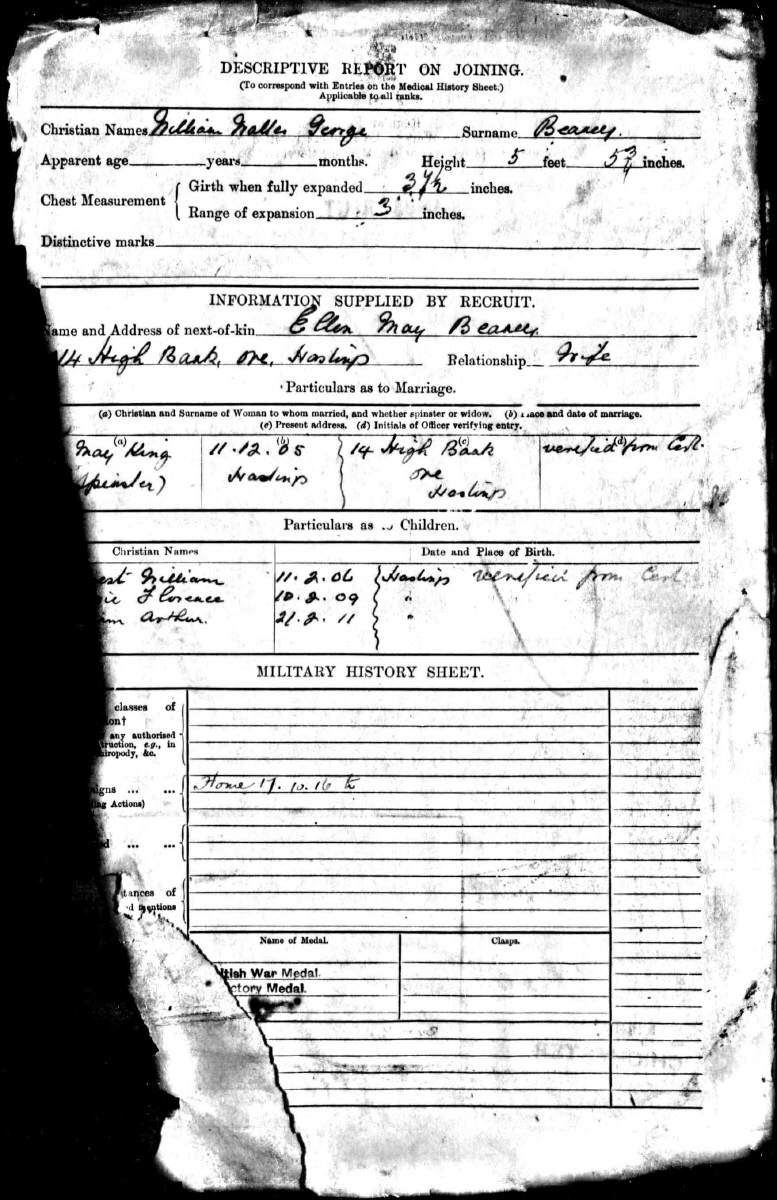 DESCRIPTIVE REPORT ON JOINING.
(To correspond with Entries on the Medical History Sheet.)
Applicable to all ranks.
Christian Names William Walter George Surname Beaney.
Apparent age years months. Height 5 feet 5 3/4 inches.
Chest Measurement { Girth when fully expanded 37½ inches.
Range of expansion 3 inches.
Distinctive marks
INFORMATION SUPPLIED BY RECRUIT.
Name and Address of next-of-kin Ellen May Beaney.
14 High Bank, Ore, Hastings Relationship Wife
Particulars as to Marriage.
(a) Christian and Surname of Woman to whom married, and whether spinster or widow. (b) Place and date of marriage.
(c) Present address. (d) Initials of Officer verifying entry.
(a) (b) (c) (d)
May King 11.12.05 14 High Bank verified from Cert.
(Spinster) Hastings Ore
Hastings
Particulars as to Children.
Christian Names Date and Place of Birth.
est William 11.2.06 Hastings verified from Cert
ie Florence 10.2.09 "
am Arthur. 21.2.11 "
MILITARY HISTORY SHEET.
classes of
ion†
any authorised
truction, e.g., in
hiropody, &c.
igns ... ... Home 17.10.16 to
ing Actions)
d ... ...
stances of
d mentions
Name of Medal. Clasps.
itish War Medal.
ctory Medal.